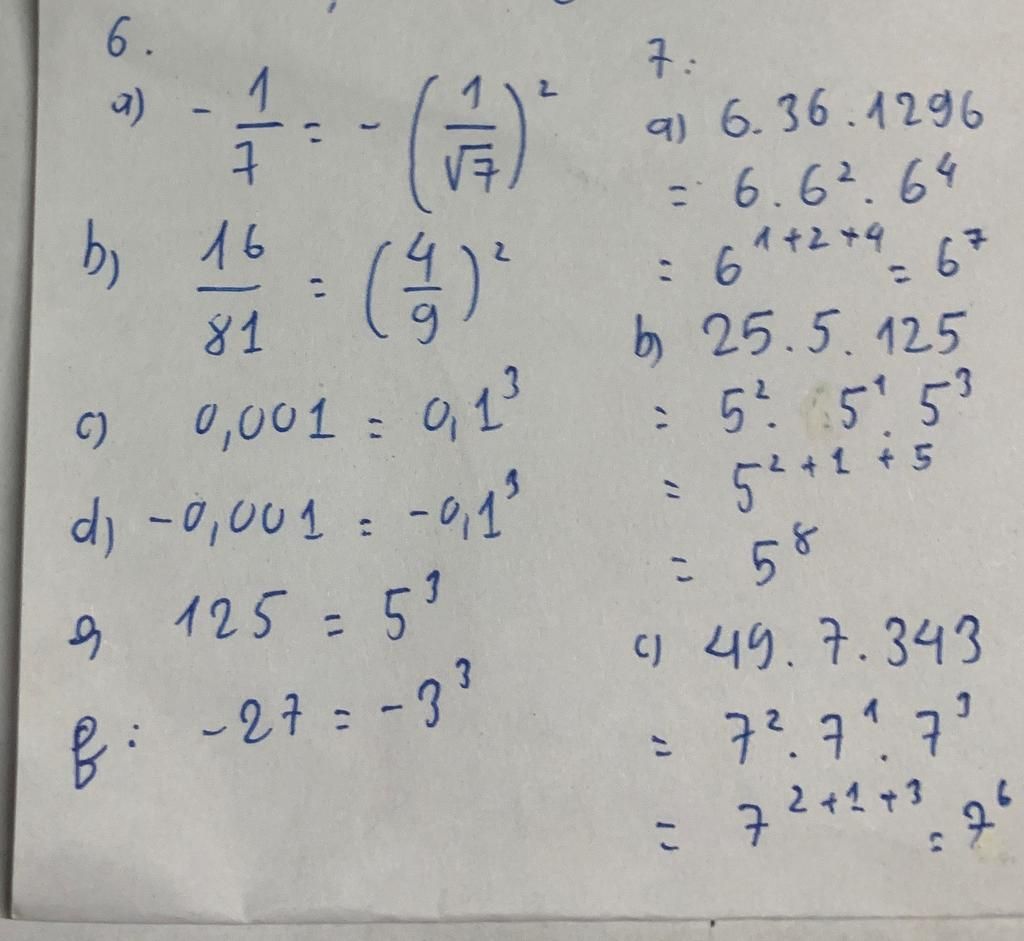 6.
a) - 1/7 = - (1/√7)²
b) 16/81 = (4/9)²
c) 0,001 = 0,1³
d) -0,001 = -0,1³
e) 125 = 5³
f: -27 = -3³
7:
a) 6.36.1296
= 6.6².6⁴
= 6¹⁺²⁺⁴ = 6⁷
b) 25.5.125
= 5². 5¹. 5³
= 5²⁺¹⁺⁵
= 5⁸
c) 49.7.343
= 7².7¹.7³
= 7²⁺¹⁺³ = 7⁶